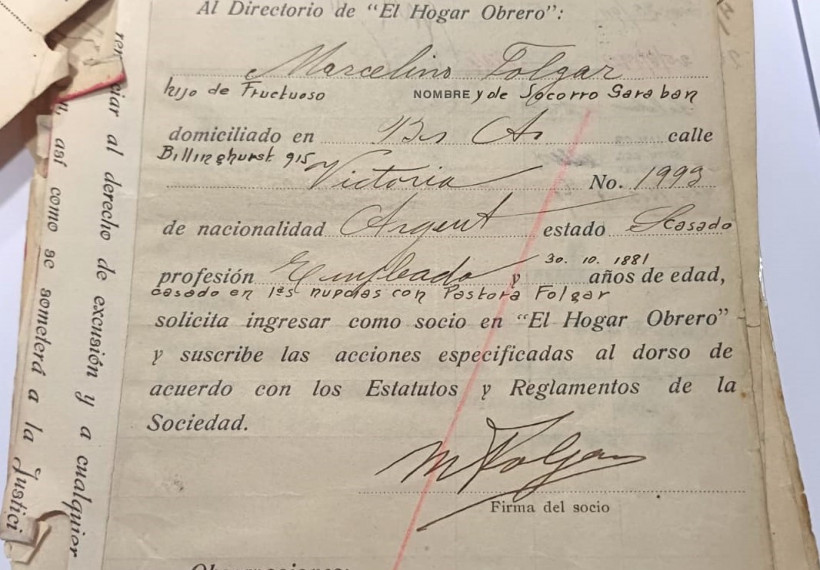 Al Directorio de "El Hogar Obrero":
Marcelino Folgar
hijo de Fructuoso NOMBRE y de Socorro Saraban
domiciliado en Bs As calle
Billinghurst 915
Victoria No. 1993
de nacionalidad Argent estado casado
30. 10. 1881
profesión Empleado y años de edad,
casado en 1as nupcias con Pastora Folgar
solicita ingresar como socio en "El Hogar Obrero"
y suscribe las acciones especificadas al dorso de
acuerdo con los Estatutos y Reglamentos de la
Sociedad.
M Folgar
Firma del socio
ciar al derecho de excusión y a cualquier
así como se someterá a la Justici